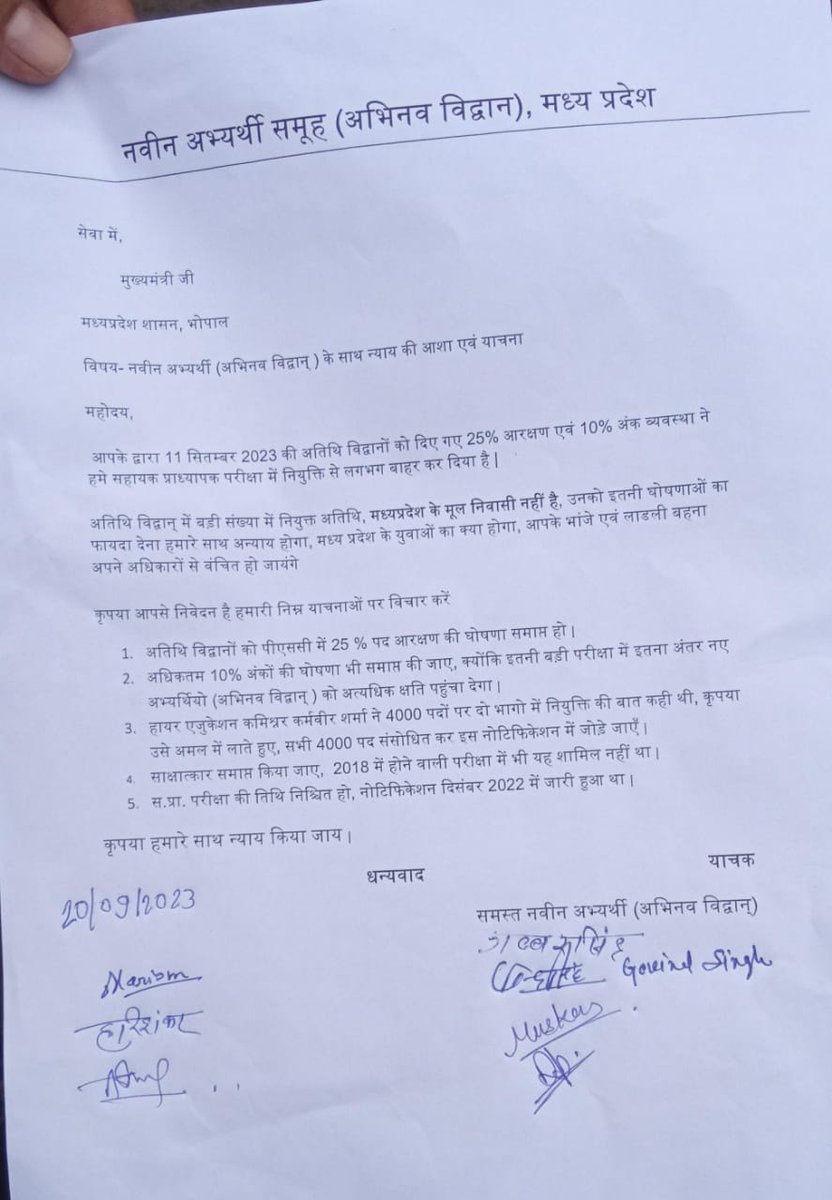 नवीन अभ्यर्थी समूह (अभिनव विद्वान), मध्य प्रदेश
सेवा में,
मुख्यमंत्री जी
मध्यप्रदेश शासन, भोपाल
विषय- नवीन अभ्यर्थी (अभिनव विद्वान् ) के साथ न्याय की आशा एवं याचना
महोदय,
आपके द्वारा 11 सितम्बर 2023 की अतिथि विद्वानों को दिए गए 25% आरक्षण एवं 10% अंक व्यवस्था ने
हमे सहायक प्राध्यापक परीक्षा में नियुक्ति से लगभग बाहर कर दिया है |
अतिथि विद्वान् में बड़ी संख्या में नियुक्त अतिथि, मध्यप्रदेश के मूल निवासी नहीं है, उनको इतनी घोषणाओं का
फायदा देना हमारे साथ अन्याय होगा, मध्य प्रदेश के युवाओं का क्या होगा, आपके भांजे एवं लाडली बहना
अपने अधिकारों से वंचित हो जायंगे
कृपया आपसे निवेदन है हमारी निम्न याचनाओं पर विचार करें
1. अतिथि विद्वानों को पीएससी में 25 % पद आरक्षण की घोषणा समाप्त हो |
2. अधिकतम 10% अंकों की घोषणा भी समाप्त की जाए, क्योंकि इतनी बड़ी परीक्षा में इतना अंतर नए
अभ्यर्थियो (अभिनव विद्वान् ) को अत्यधिक क्षति पहुंचा देगा |
3. हायर एजुकेशन कमिश्नर कर्मवीर शर्मा ने 4000 पदों पर दो भागो में नियुक्ति की बात कही थी, कृपया
उसे अमल में लाते हुए, सभी 4000 पद संसोधित कर इस नोटिफिकेशन में जोड़े जाएँ |
4. साक्षात्कार समाप्त किया जाए, 2018 में होने वाली परीक्षा में भी यह शामिल नहीं था |
5. स.प्रा. परीक्षा की तिथि निश्चित हो, नोटिफिकेशन दिसंबर 2022 में जारी हुआ था |
कृपया हमारे साथ न्याय किया जाय |
धन्यवाद
याचक
20/09/2023
समस्त नवीन अभ्यर्थी (अभिनव विद्वान्)
Govind Singh
हरिशंकर
Muskan